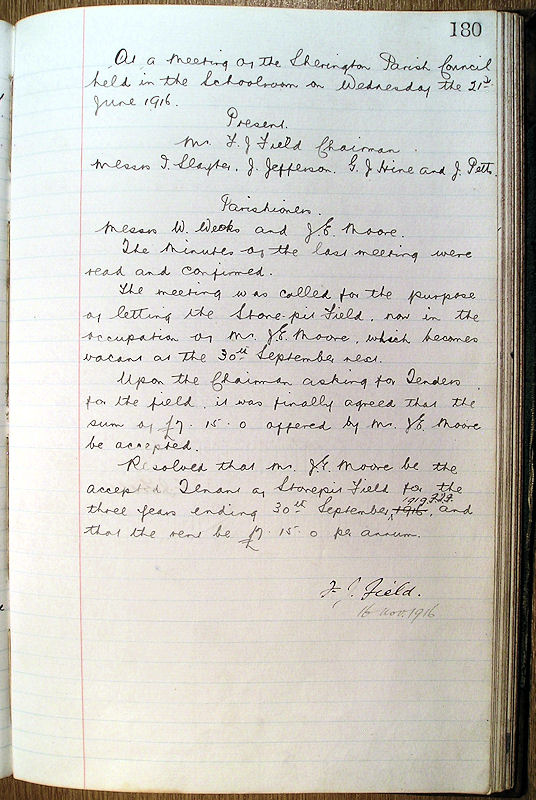 180
At a meeting of the Sherington Parish Council
held in the Schoolroom on Wednesday the 21st
June 1916.
Present.
Mr. F. J Field Chairman.
Messrs I. Slayter, J. Jefferson, G. J Hine and J. Petts.
Parishioners.
Messrs W. Weeks and J.E. Moore.
The Minutes of the last meeting were
read and confirmed.
The meeting was called for the purpose
of letting the Stone-pit Field, now in the
occupation of Mr. J.E. Moore, which becomes
vacant at the 30th September next.
Upon the Chairman asking for Tenders
for the field, it was finally agreed that the
sum of £7. 15. 0 offered by Mr. J.E. Moore
be accepted.
Resolved that Mr. J.E. Moore be the
accepted Tenant of Stonepit Field for the
1919 FJF.
three years ending 30th September, 1916, and
that the rent be £7. 15. 0 per annum.
F. J. Field.
16 Nov. 1916